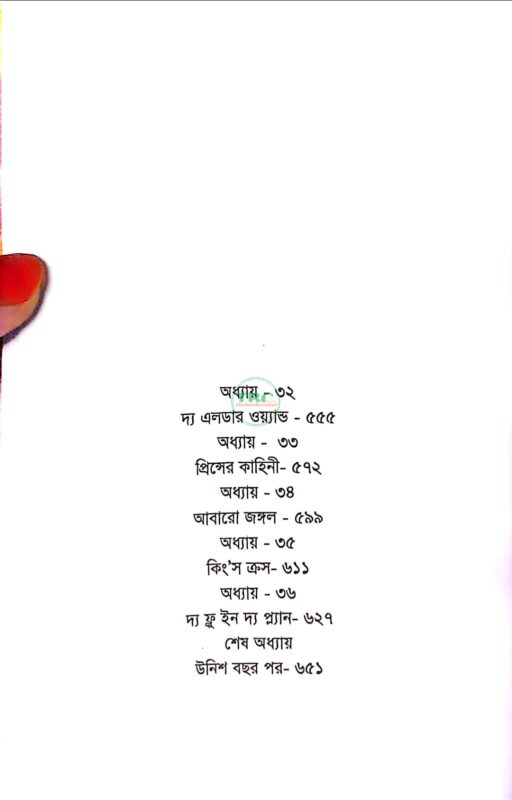 অধ্যায় - ৩২
দ্য এলডার ওয়্যান্ড - ৫৫৫
অধ্যায় - ৩৩
প্রিন্সের কাহিনী- ৫৭২
অধ্যায় - ৩৪
আবারো জঙ্গল - ৫৯৯
অধ্যায় - ৩৫
কিং'স ক্রস- ৬১১
অধ্যায় - ৩৬
দ্য ফ্লু ইন দ্য প্ল্যান- ৬২৭
শেষ অধ্যায়
উনিশ বছর পর- ৬৫১